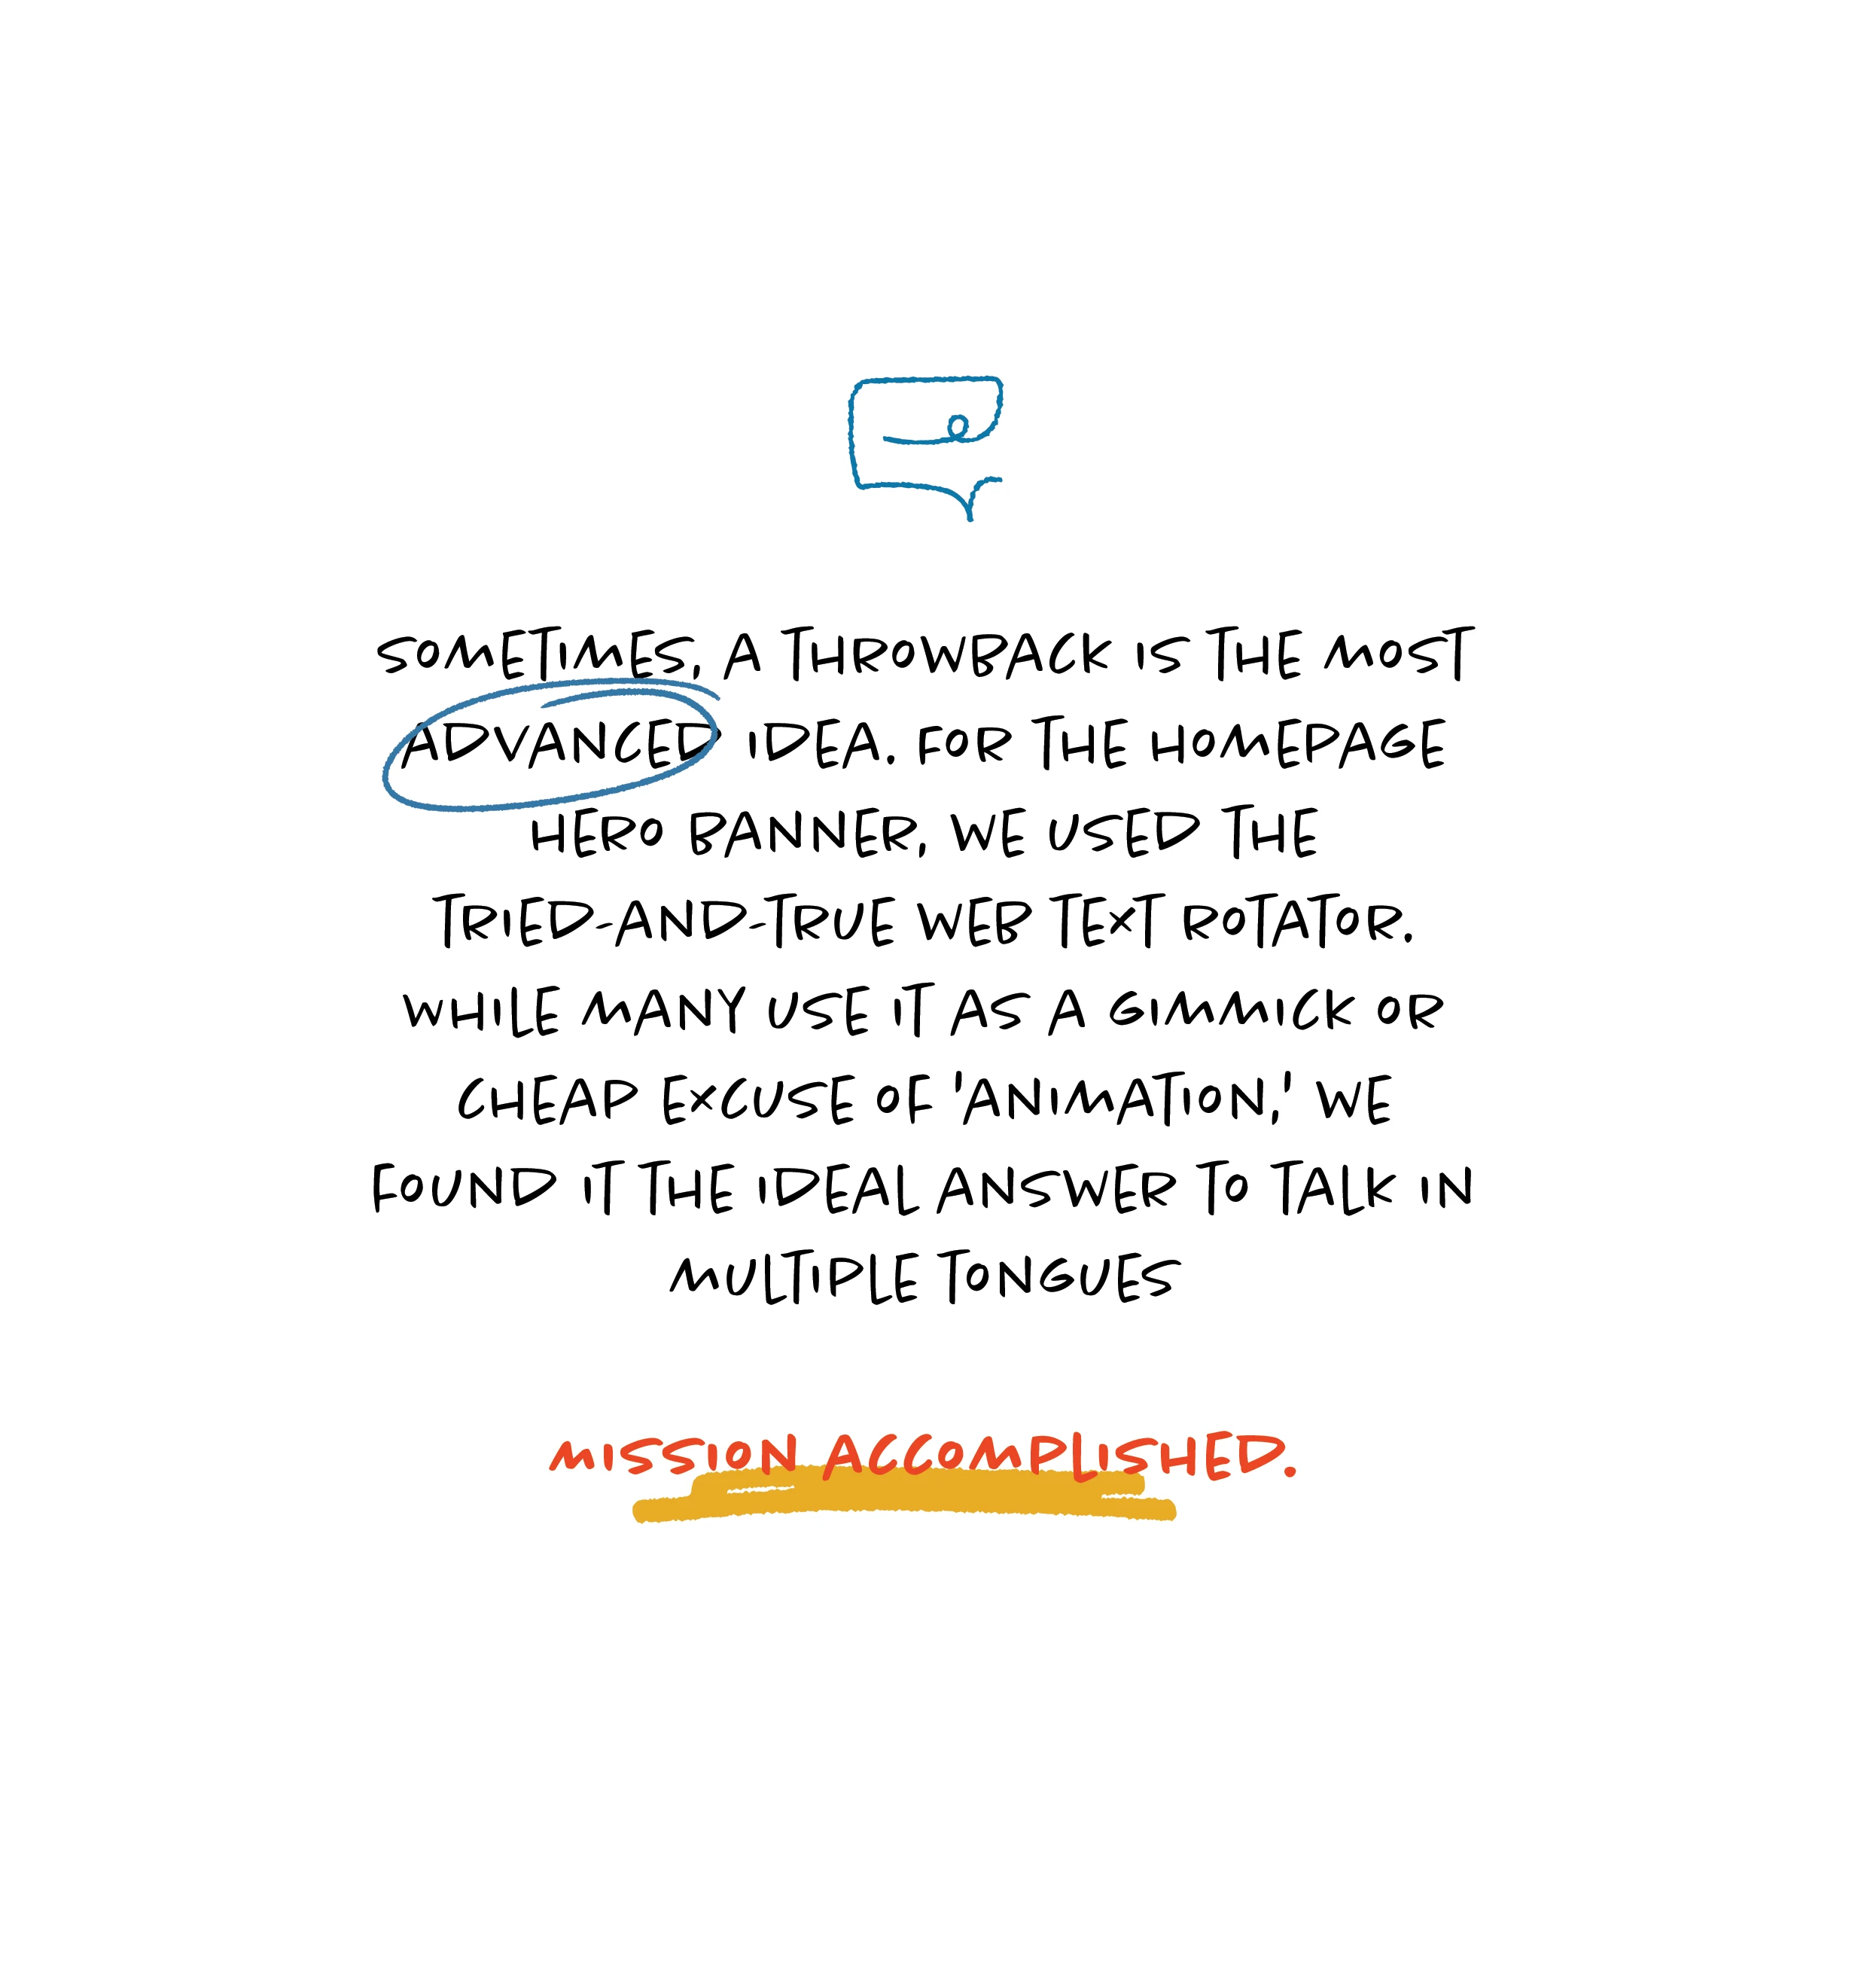 SOMETIMES, A THROWBACK IS THE MOST
ADVANCED IDEA. FOR THE HOMEPAGE
HERO BANNER, WE USED THE
TRIED-AND-TRUE WEB TEXT ROTATOR.
WHILE MANY USE IT AS A GIMMICK OR
CHEAP EXCUSE OF 'ANIMATION,' WE
FOUND IT THE IDEAL ANSWER TO TALK IN
MULTIPLE TONGUES
MISSION ACCOMPLISHED.